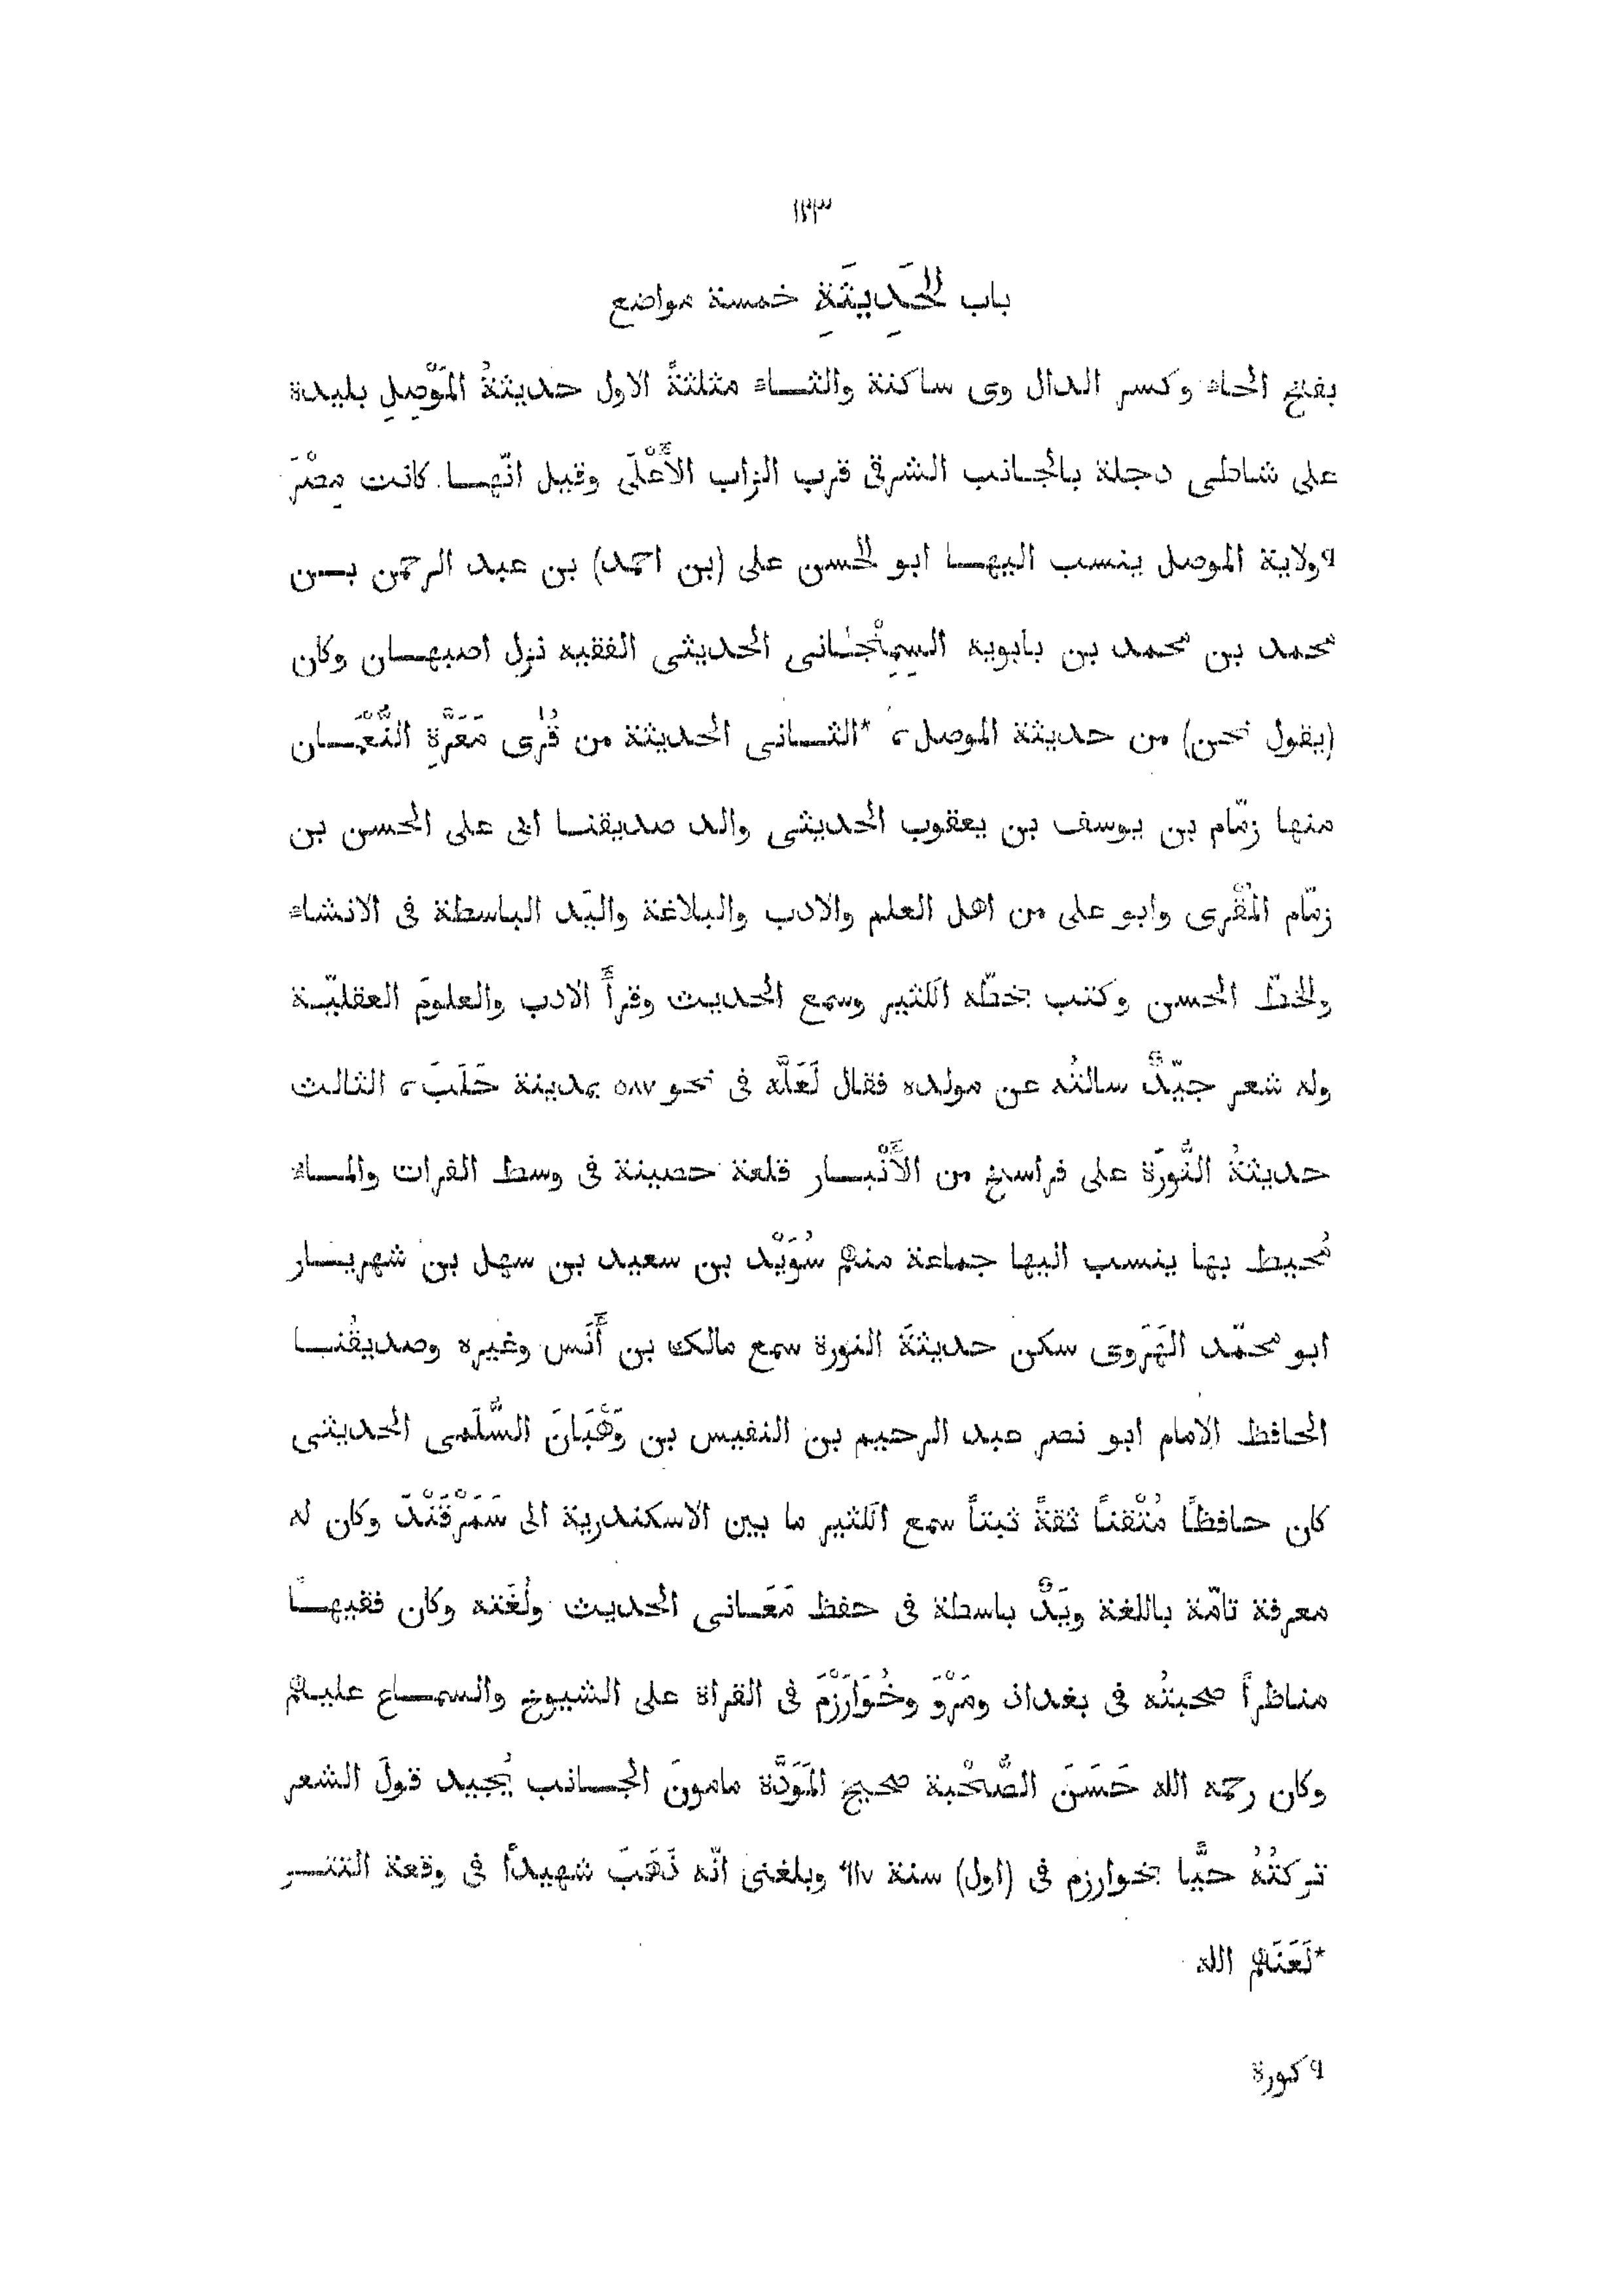 ١٢٣
باب الحَدِيثَةِ خمسة مواضع
بفتح الحاء وكسر الدال وى ساكنة والثــاء مثلثةً الاول حديثةُ المَوْصِلِ بليدة
على شاطى دجلة بالجـانب الشرقى قرب الزاب الأَعْلَى وقيل انّهـا كانت مِصْرَ
٩ ولاية الموصل ينسب اليهـا ابو الحسن على (بن احمد) بن عبد الرحمن بـن
محمد بن محمد بن بابويه السِمِنْجـانى الحديثى الفقيه نزل اصبهـان وكان
(يقول نحن) من حديثة الموصل، *الثـانى الحديثة من قُرَى مَعَرَّةِ النُّعْمَـان
منها زمّام بن يوسف بن يعقوب الحديثى والد صديقنـا ابى على الحسن بن
زمّام المُقْرى وابو على من اهل العلم والادب والبلاغة واليَد الباسطة فى الانشاء
والخطّ الحسن وكتب بخطّه الكثير وسمع الحديث وقرأَ الادب والعلومَ العقليّـة
وله شعر جيّدٌ سالتُه عن مولده فقال لَعَلَّه فى نحو ٥٨٧ بمدينة حَلَبَ، الثالث
حديثةُ النُّورَة على فراسخ من الأَنْبـار قلعة حصينة فى وسط الفرات والمـاء
مُحيط بها ينسب اليها جماعة منهم سُوَيْد بن سعيد بن سهل بن شهريـار
ابو محمّد الهَرَوى سكن حديثةَ النورة سمع مالك بن أَنَس وغيره وصديقُنـا
الحافظ الامام ابو نصر عبد الرحيم بن النفيس بن وَهْبَانَ السُّلَمى الحديثى
كان حافظًا مُتْقنًا ثقةً ثبتاً سمع الكثير ما بين الاسكندرية الى سَمَرْقَنْدَ وكان له
معرفة تامّة باللغة ويَدٌ باسطة فى حفظ مَعَـانى الحديث ولُغَته وكان فقيهـًا
مناظراً صحبتُه فى بغداد ومَرْوَ وخُوَارَزْمَ فى القراة على الشيوخ والسمـاع عليهم
وكان رحمه الله حَسَنَ الصُّحْبة صحيح المَوَدَّة مامونَ الجـانب يُجيد قولَ الشعر
تركتُهُ حيًّا بخوارزم فى (اول) سنة ٦١٧ وبلغنى انّه ذَهَبَ شهيداً فى وقعة التتـر
*لَعَنَهُم الله
٩ كورة